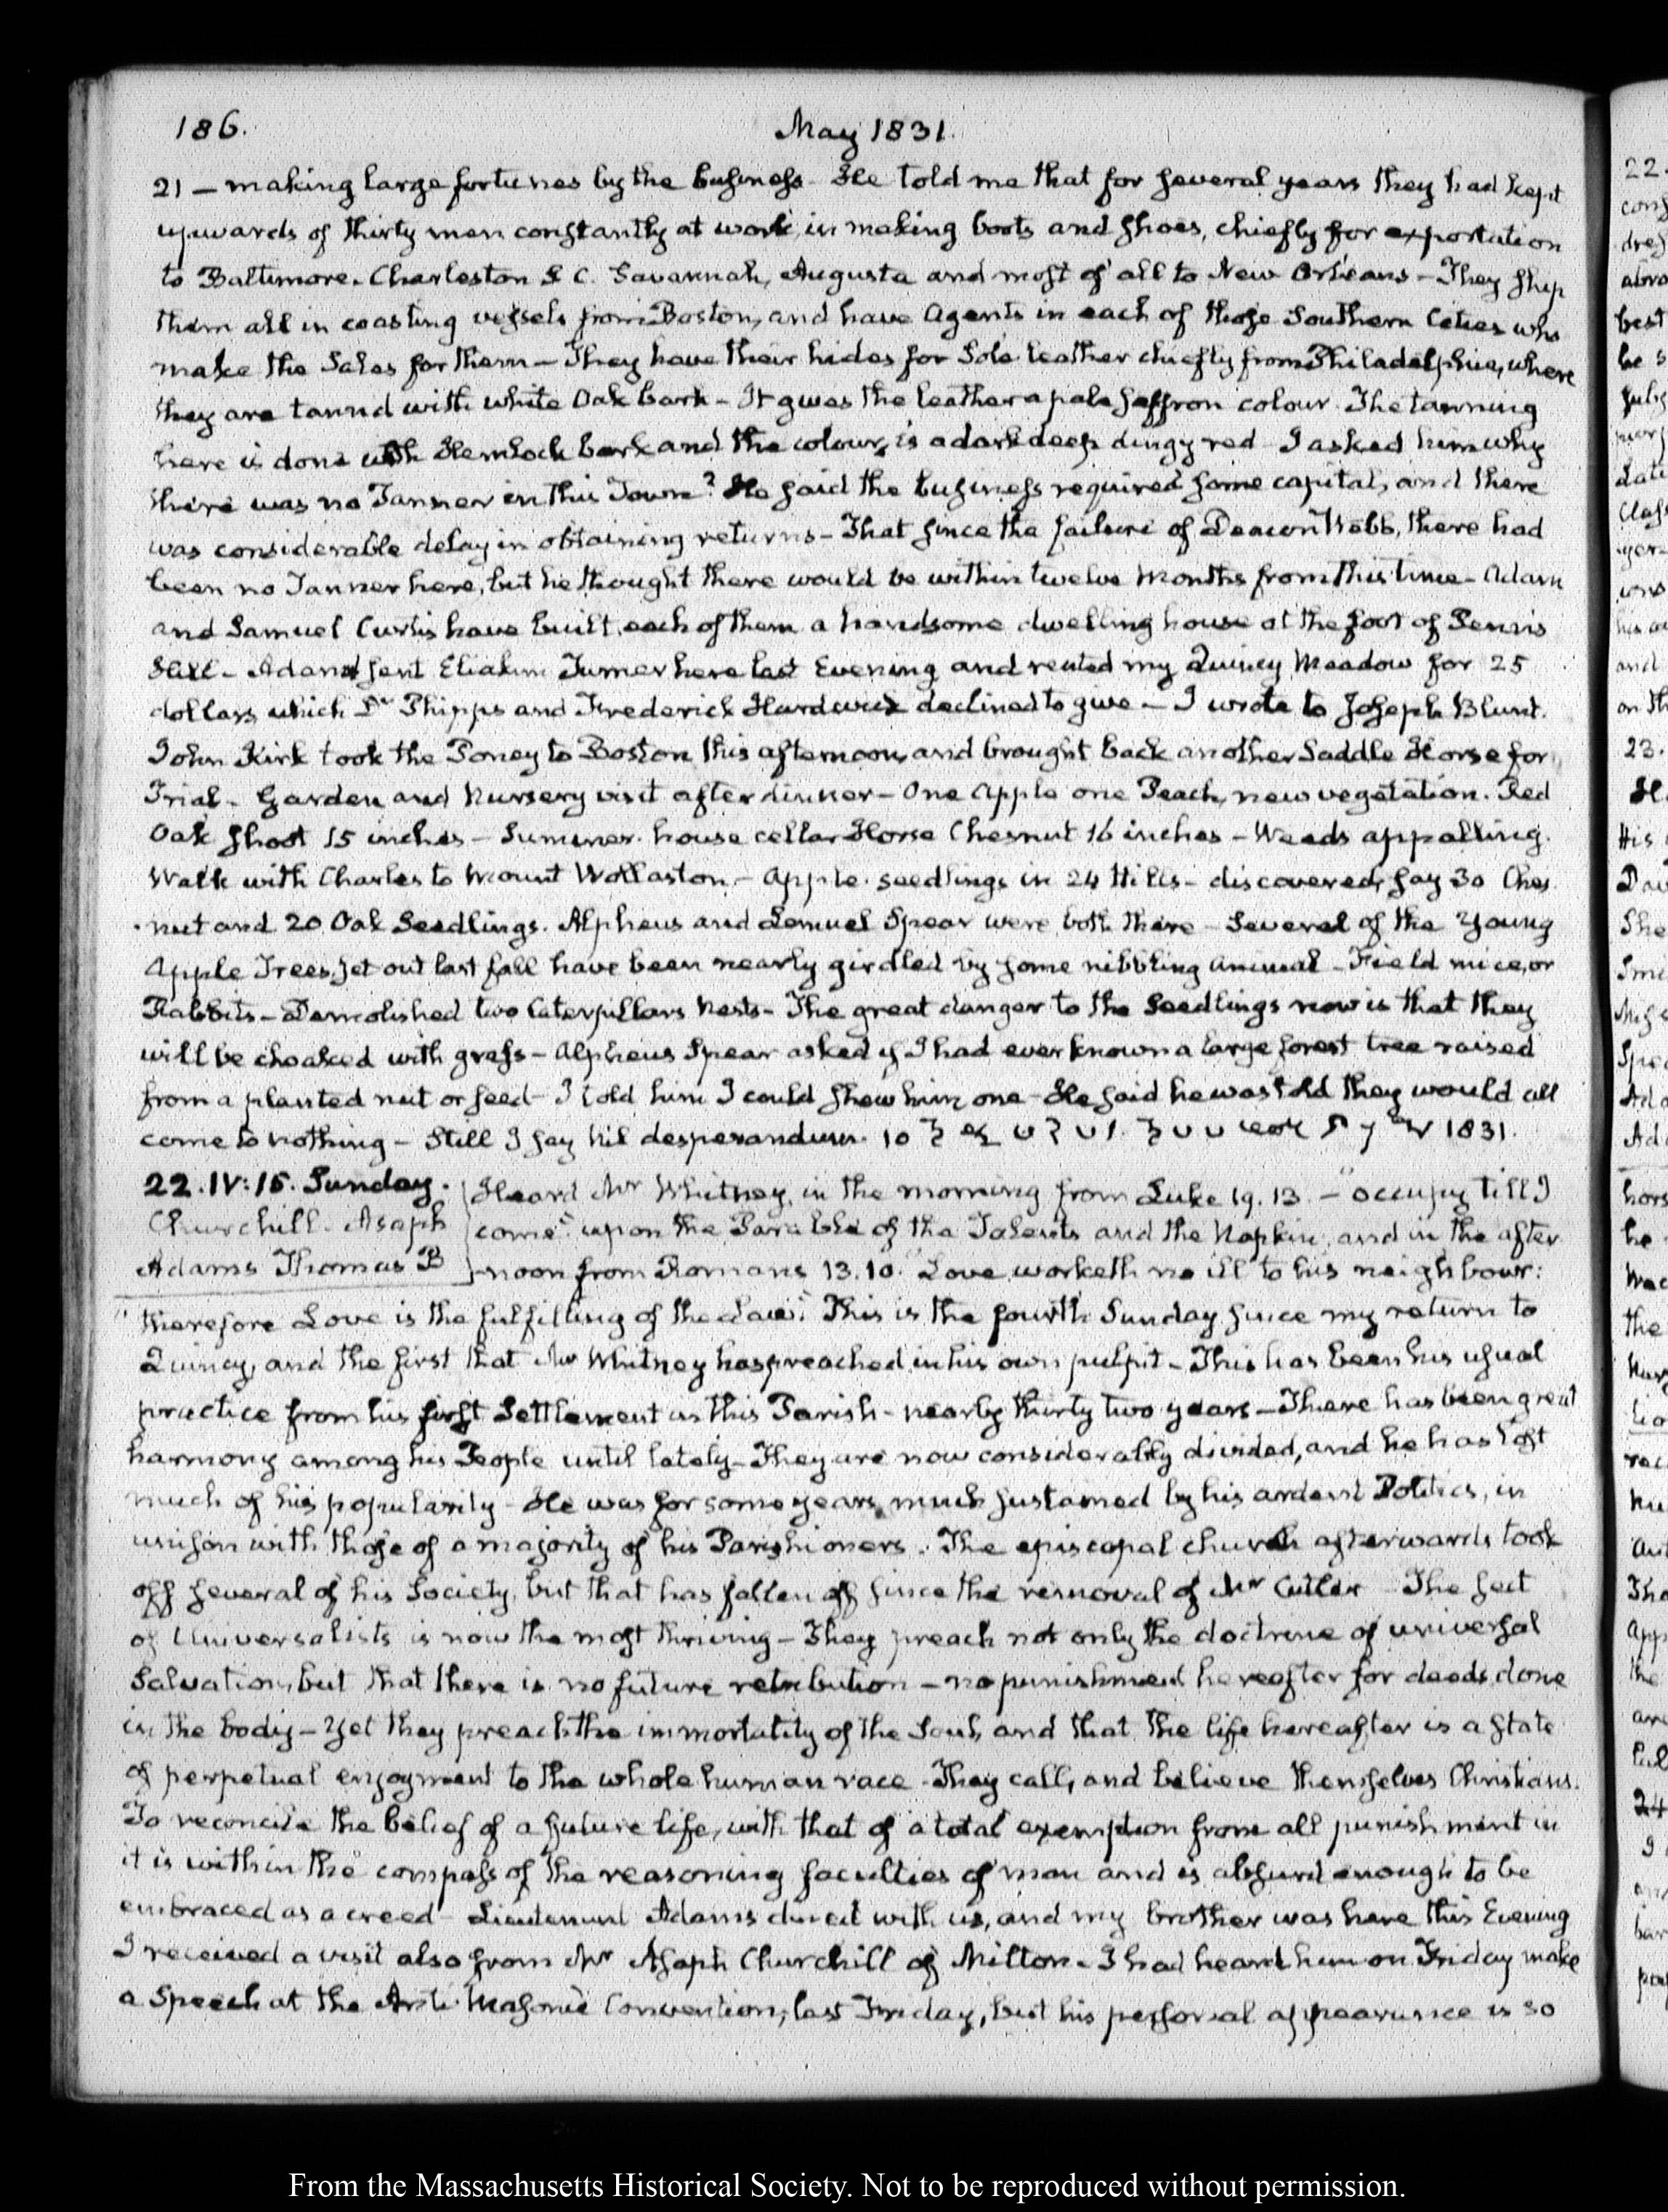 186.
May 1831.
21 — making large fortunes by the business. He told me that for several years they had kept
upwards of thirty men constantly at work, in making boots and shoes, chiefly for exportation
to Baltimore. Charleston S C. Savannah, Augusta and most of all to New Orleans – They ship
them all in coasting vessels from Boston, and have Agents in each of those Southern Cities who
make the Sales for them – They have their hides for Sole leather chiefly from Philadelphia, where
they are tannd with white Oak bark – It gives the leather a pale saffron colour. The tanning
here is done with Hemlock bark and the colour, is a dark deep dingy red I asked him why
there was no Tanner in this Town? He said the business required some capital, and there
was considerable delay in obtaining returns – That since the failure of Deacon Webb, there had
been no Tanner here, but he thought there would be within twelve Months from this time – Adam
and Samuel Curtis have built, each of them a handsome dwelling house at the foot of Penn's
Hill – Adam sent Eliakim Turner here last Evening and rented my Quincy Meadow for 25
dollars which Dr Phipps and Frederick Hardwick declined to give – I wrote to Joseph Blunt.
John Kirk took the Poney to Boston this afternoon, and brought back another Saddle Horse for
Trial – Garden and Nursery visit after dinner – One Apple one Peach, new vegetation. Red
Oak shoot 15 inches – Summer-house cellar Horse Chesnut 16 inches – Weeds appalling.
Walk with Charles to Mount Wollaston – Apple-seedlings in 24 Hills – discovered, say 30 Ches
nut and 20 Oak Seedlings. Alpheus and Lemuel Spear were both there – Several of the Young
Apple Trees, set out last fall have been nearly girdled by some nibbling animal – Field mice, or
Rabbits – Demolished two Caterpillars Nests – The great danger to the Seedlings now is that they
will be choaked with grass – Alpheus Spear asked if I had ever known a large forest tree raised
from a planted nut or seed – I told him I could shew him one – He said he was told they would all
come to nothing – Still I say nil desperandum. 10 1831.
22. IV:15. Sunday.
Churchill. Asaph
Adams Thomas B
Heard Mr Whitney, in the morning from Luke 19. 13. – "Occupy till I
come" upon the Parable of the Talents and the Napkin, and in the after
noon from Romans 13.10. "Love worketh no ill to his neighbour:
"therefore Love is the fulfilling of the Law." This is the fourth Sunday since my return to
Quincy, and the first that Mr Whitney has preached in his own pulpit – This has been his usual
practice from his first Settlement in this Parish – nearly thirty two years – There has been great
harmony among his People until lately – They are now considerably divided, and he has lost
much of his popularity – He was for some years, much sustained by his ardent Politics, in
unison with those of a majority of his Parishioners. The episcopal church afterwards took
off several of his Society, but that has fallen off since the removal of Mr Cutler – The sect
of Universalists is now the most thriving – They preach not only the doctrine of universal
Salvation, but that there is no future retribution – no punishment hereafter for deeds done
in the body – Yet they preach the immortality of the Soul, and that the life hereafter is a state
of perpetual enjoyment to the whole human race – They call, and believe themselves Christians.
To reconcile the belief of a future life, with that of a total exemption from all punishment in
it is within the compass of the reasoning faculties of man and is absurd enough to be
embraced as a creed – Lieutenant Adams dined with us, and my brother was here this Evening
I received a visit also from Mr Asaph Churchill of Milton. I had heard him on Friday make
a Speech at the Anti-Masonic Convention, last Friday, but his personal appearance is so
From the Massachusetts Historical Society. Not to be reproduced without permission.